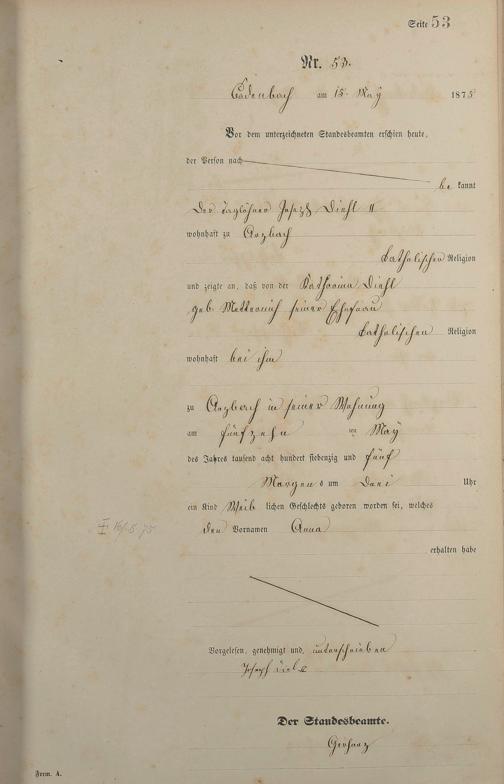 Seite 53
Nr. 53.
Cadenbach am 15. May 1875
Vor dem unterzeichneten Standesbeamten erschien heute,
der Person nach
be kannt
Der Taglöhner Joseph Diehl II
wohnhaft zu Arzbach
katholischer Religion
und zeigte an, daß von der Katharina Diehl
geb. Metternich seiner Ehefrau
katholischen Religion
wohnhaft bei ihm
zu Arzbach in seiner Wohnung
am fünfzehn ten May
des Jahres tausend acht hundert siebenzig und fünf
Morgens um Drei Uhr
ein Kind Weib lichen Geschlechts geboren worden sei, welches
den Vornamen Anna
erhalten habe
Vorgelesen, genehmigt und unterschrieben
Joseph Diel
Der Standesbeamte.
Gerharz
Form. A.